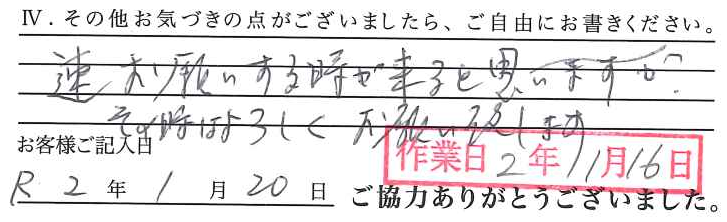 Ⅳ．その他お気づきの点がございましたら、ご自由にお書きください。
又お願いする時が来ると思いますが？
その時はよろしくお願い致します
お客様ご記入日
作業日 2年11月16日
R 2 年 1 月 20 日 ご協力ありがとうございました。